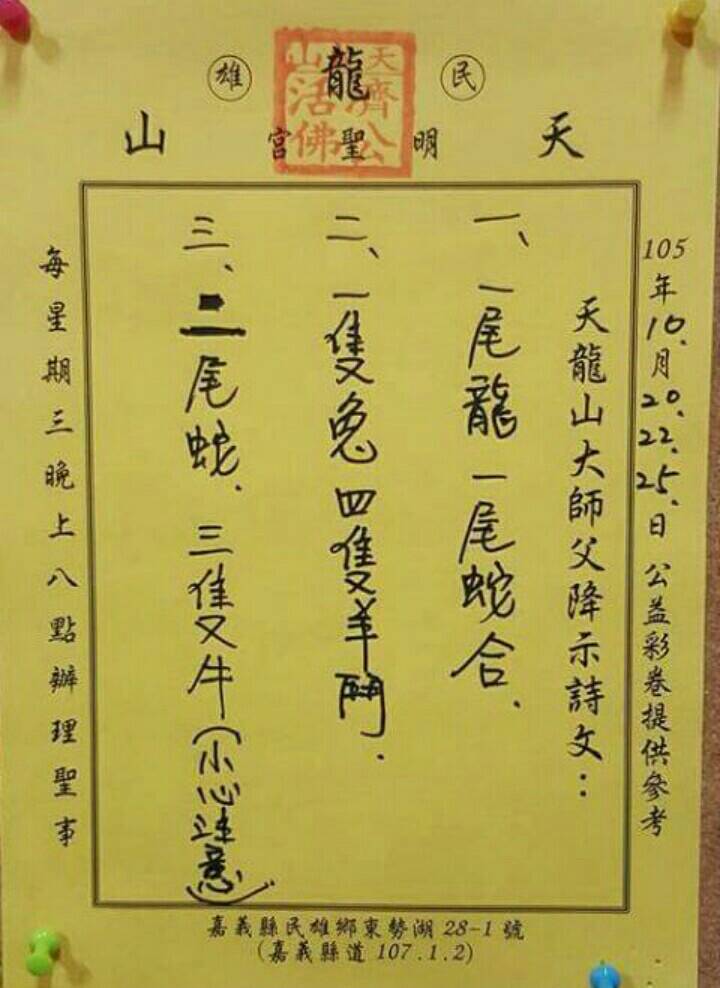 民雄
天龍山
明聖宮
天山
濟公
活佛
105年10.月20.22.25.日公益彩卷提供參考
天龍山大師父降示詩文：
一、一尾龍一尾蛇合.
二、一隻兔四隻羊鬥.
三、二尾蛇.三隻牛(小心注意)
每星期三晚上八點辦理聖事
嘉義縣民雄鄉東勢湖28-1號
(嘉義縣道107.1.2)